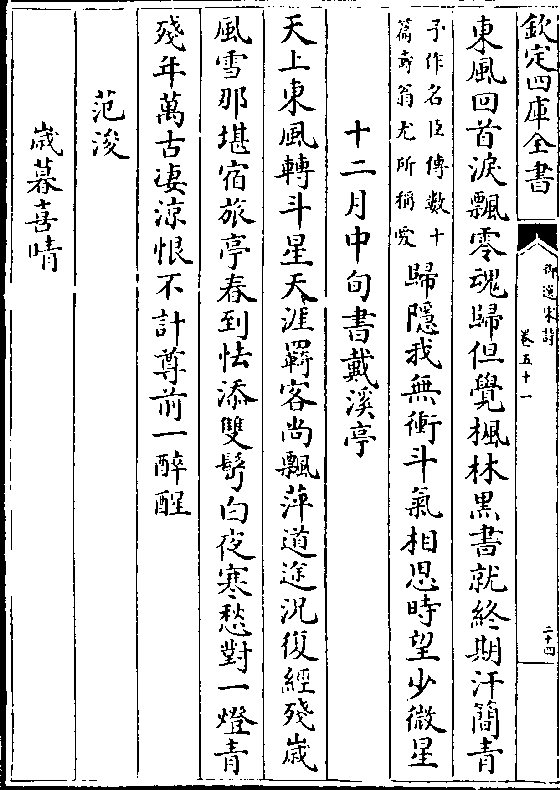 欽定四庫全書
御選宋詩
卷五十一
二十四
東風回首淚飄零魂歸但覺楓林黑書就終期汗簡青
子作名臣傳數十
篇壽翁尤所稱愛
歸隱我無衝斗氣相思時望少微星
十二月中旬書戴溪亭
天上東風轉斗星天涯羇客尚飄萍道途況復經殘歲
風雪那堪宿旅亭春到怯添雙髩白夜寒愁對一燈青
殘年萬古凄涼恨不計尊前一醉醒
范浚
歲暮喜晴